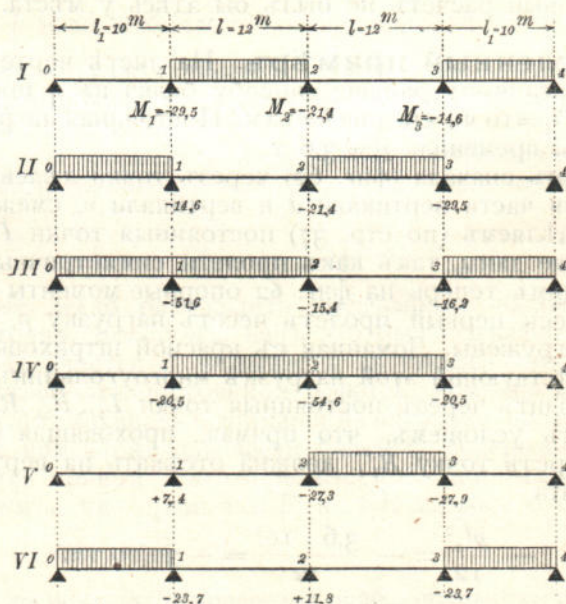 l₁=10ᵐ l=12ᵐ l=12ᵐ l₁=10ᵐ
I 0 1 2 3 4
M₁=-22,5 M₂=-21,4 M₃=-14,6
II 0 1 2 3 4
-14,6 -21,4 -22,5
III 0 1 2 3 4
-51,6 -15,4 -16,2
IV 0 1 2 3 4
-20,5 -54,6 -20,5
V 0 1 2 3 4
-27,3 -17,9
VI 0 1 2 3 4
-23,7 +11,8 -23,7